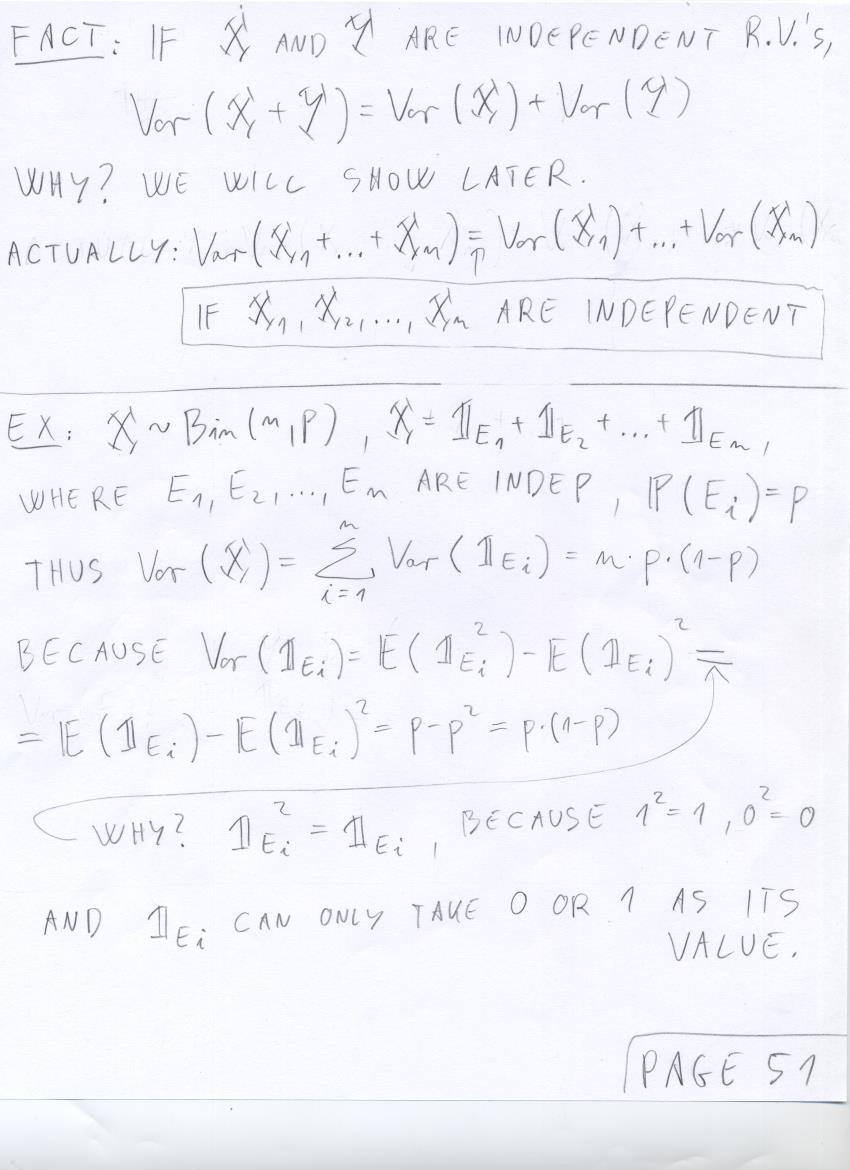 FACT: IF X AND Y ARE INDEPENDENT R.V.'s,
Var(X + Y) = Var(X) + Var(Y)
WHY? WE WILL SHOW LATER.
ACTUALLY: Var(X₁+...+Xₙ) = Var(X₁)+...+Var(Xₙ)
↑
IF X₁, X₂,..., Xₙ ARE INDEPENDENT
EX: X ~ Bin(n,p), X = 𝟙_E₁ + 𝟙_E₂ + ... + 𝟙_Eₙ,
WHERE E₁, E₂,..., Eₙ ARE INDEP, ℙ(Eᵢ)=p
THUS Var(X) = ∑ᵢ₌₁ⁿ Var(𝟙_Eᵢ) = n·p·(1-p)
BECAUSE Var(𝟙_Eᵢ) = 𝔼(𝟙_Eᵢ²) - 𝔼(𝟙_Eᵢ)² =
= 𝔼(𝟙_Eᵢ) - 𝔼(𝟙_Eᵢ)² = p-p² = p·(1-p)
WHY? 𝟙_Eᵢ² = 𝟙_Eᵢ, BECAUSE 1²=1, 0²=0
AND 𝟙_Eᵢ CAN ONLY TAKE 0 OR 1 AS ITS
VALUE.
PAGE 51